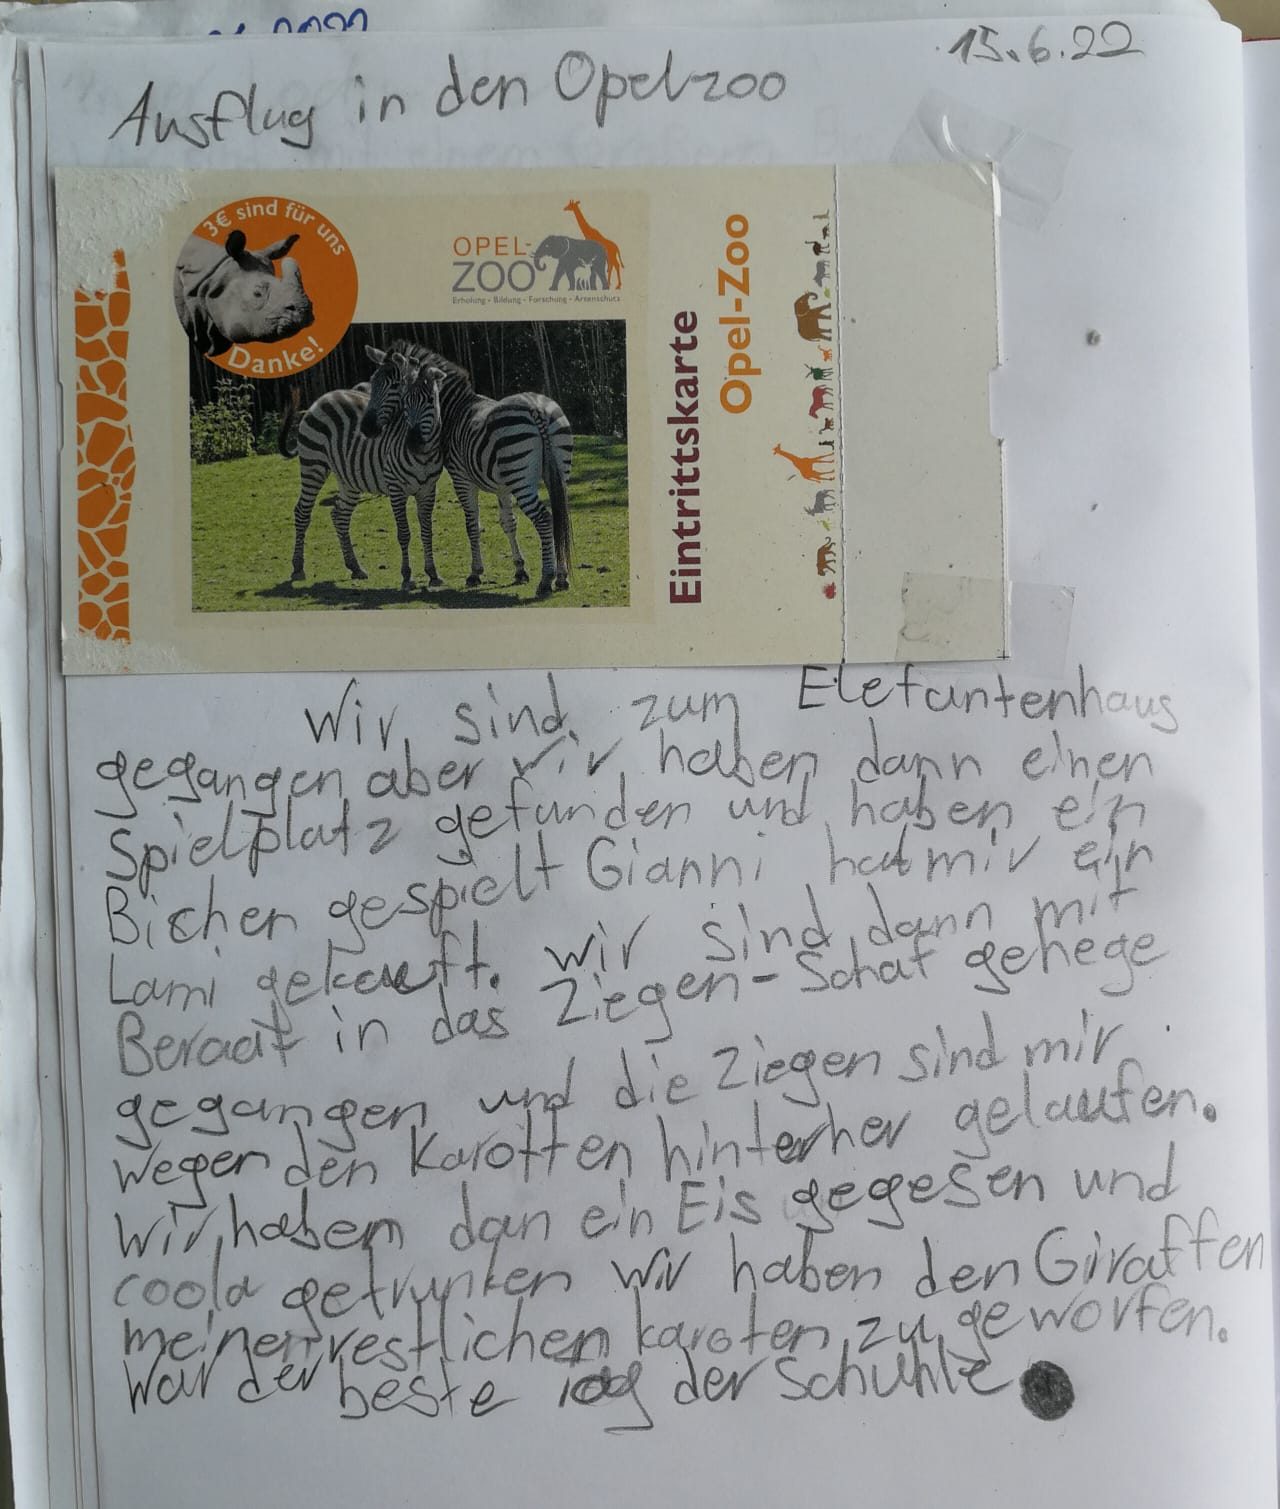 15.6.22
Ausflug in den Opelzoo
3€ sind für uns
Danke!
OPEL-
ZOO
Erholung - Bildung - Forschung - Artenschutz
Eintrittskarte
Opel-Zoo
Wir sind zum Elefantenhaus
gegangen aber wir haben dann einen
Spielplatz gefunden und haben ein
Bischen gespielt Gianni hat mir ein
Lami gekauft. wir sind dann mit
in das Ziegen-Schaf gehege
gegangen und die Ziegen sind mir
wegen den Karotten hinterher gelaufen.
Wir haben dan ein Eis gegesen und
coola getrunken wir haben den Giraffen
meinen restlichen karoten zu geworfen.
War der beste tag der Schuhle.